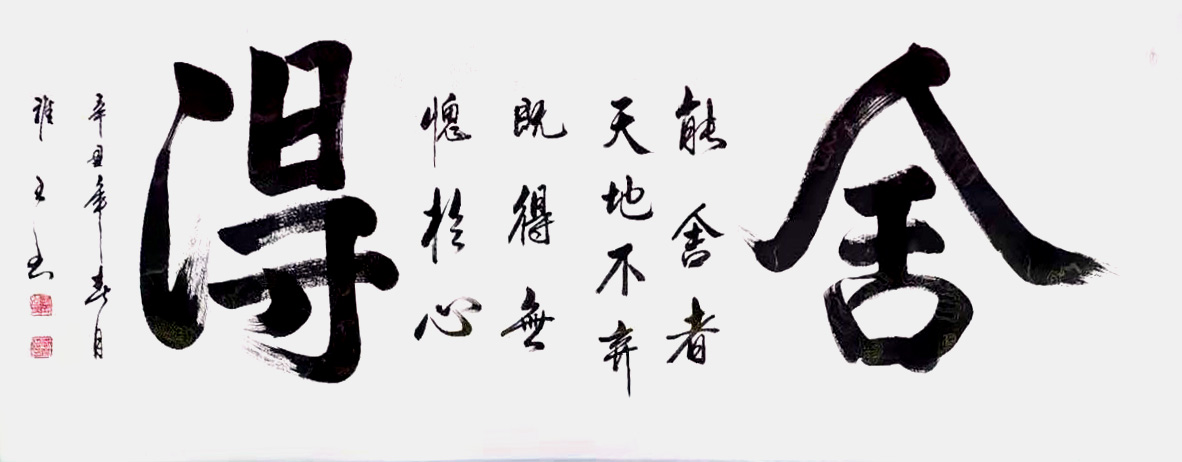 舍
能舍者
天地不弃
既得無
愧於心
得
辛丑年春月
王书